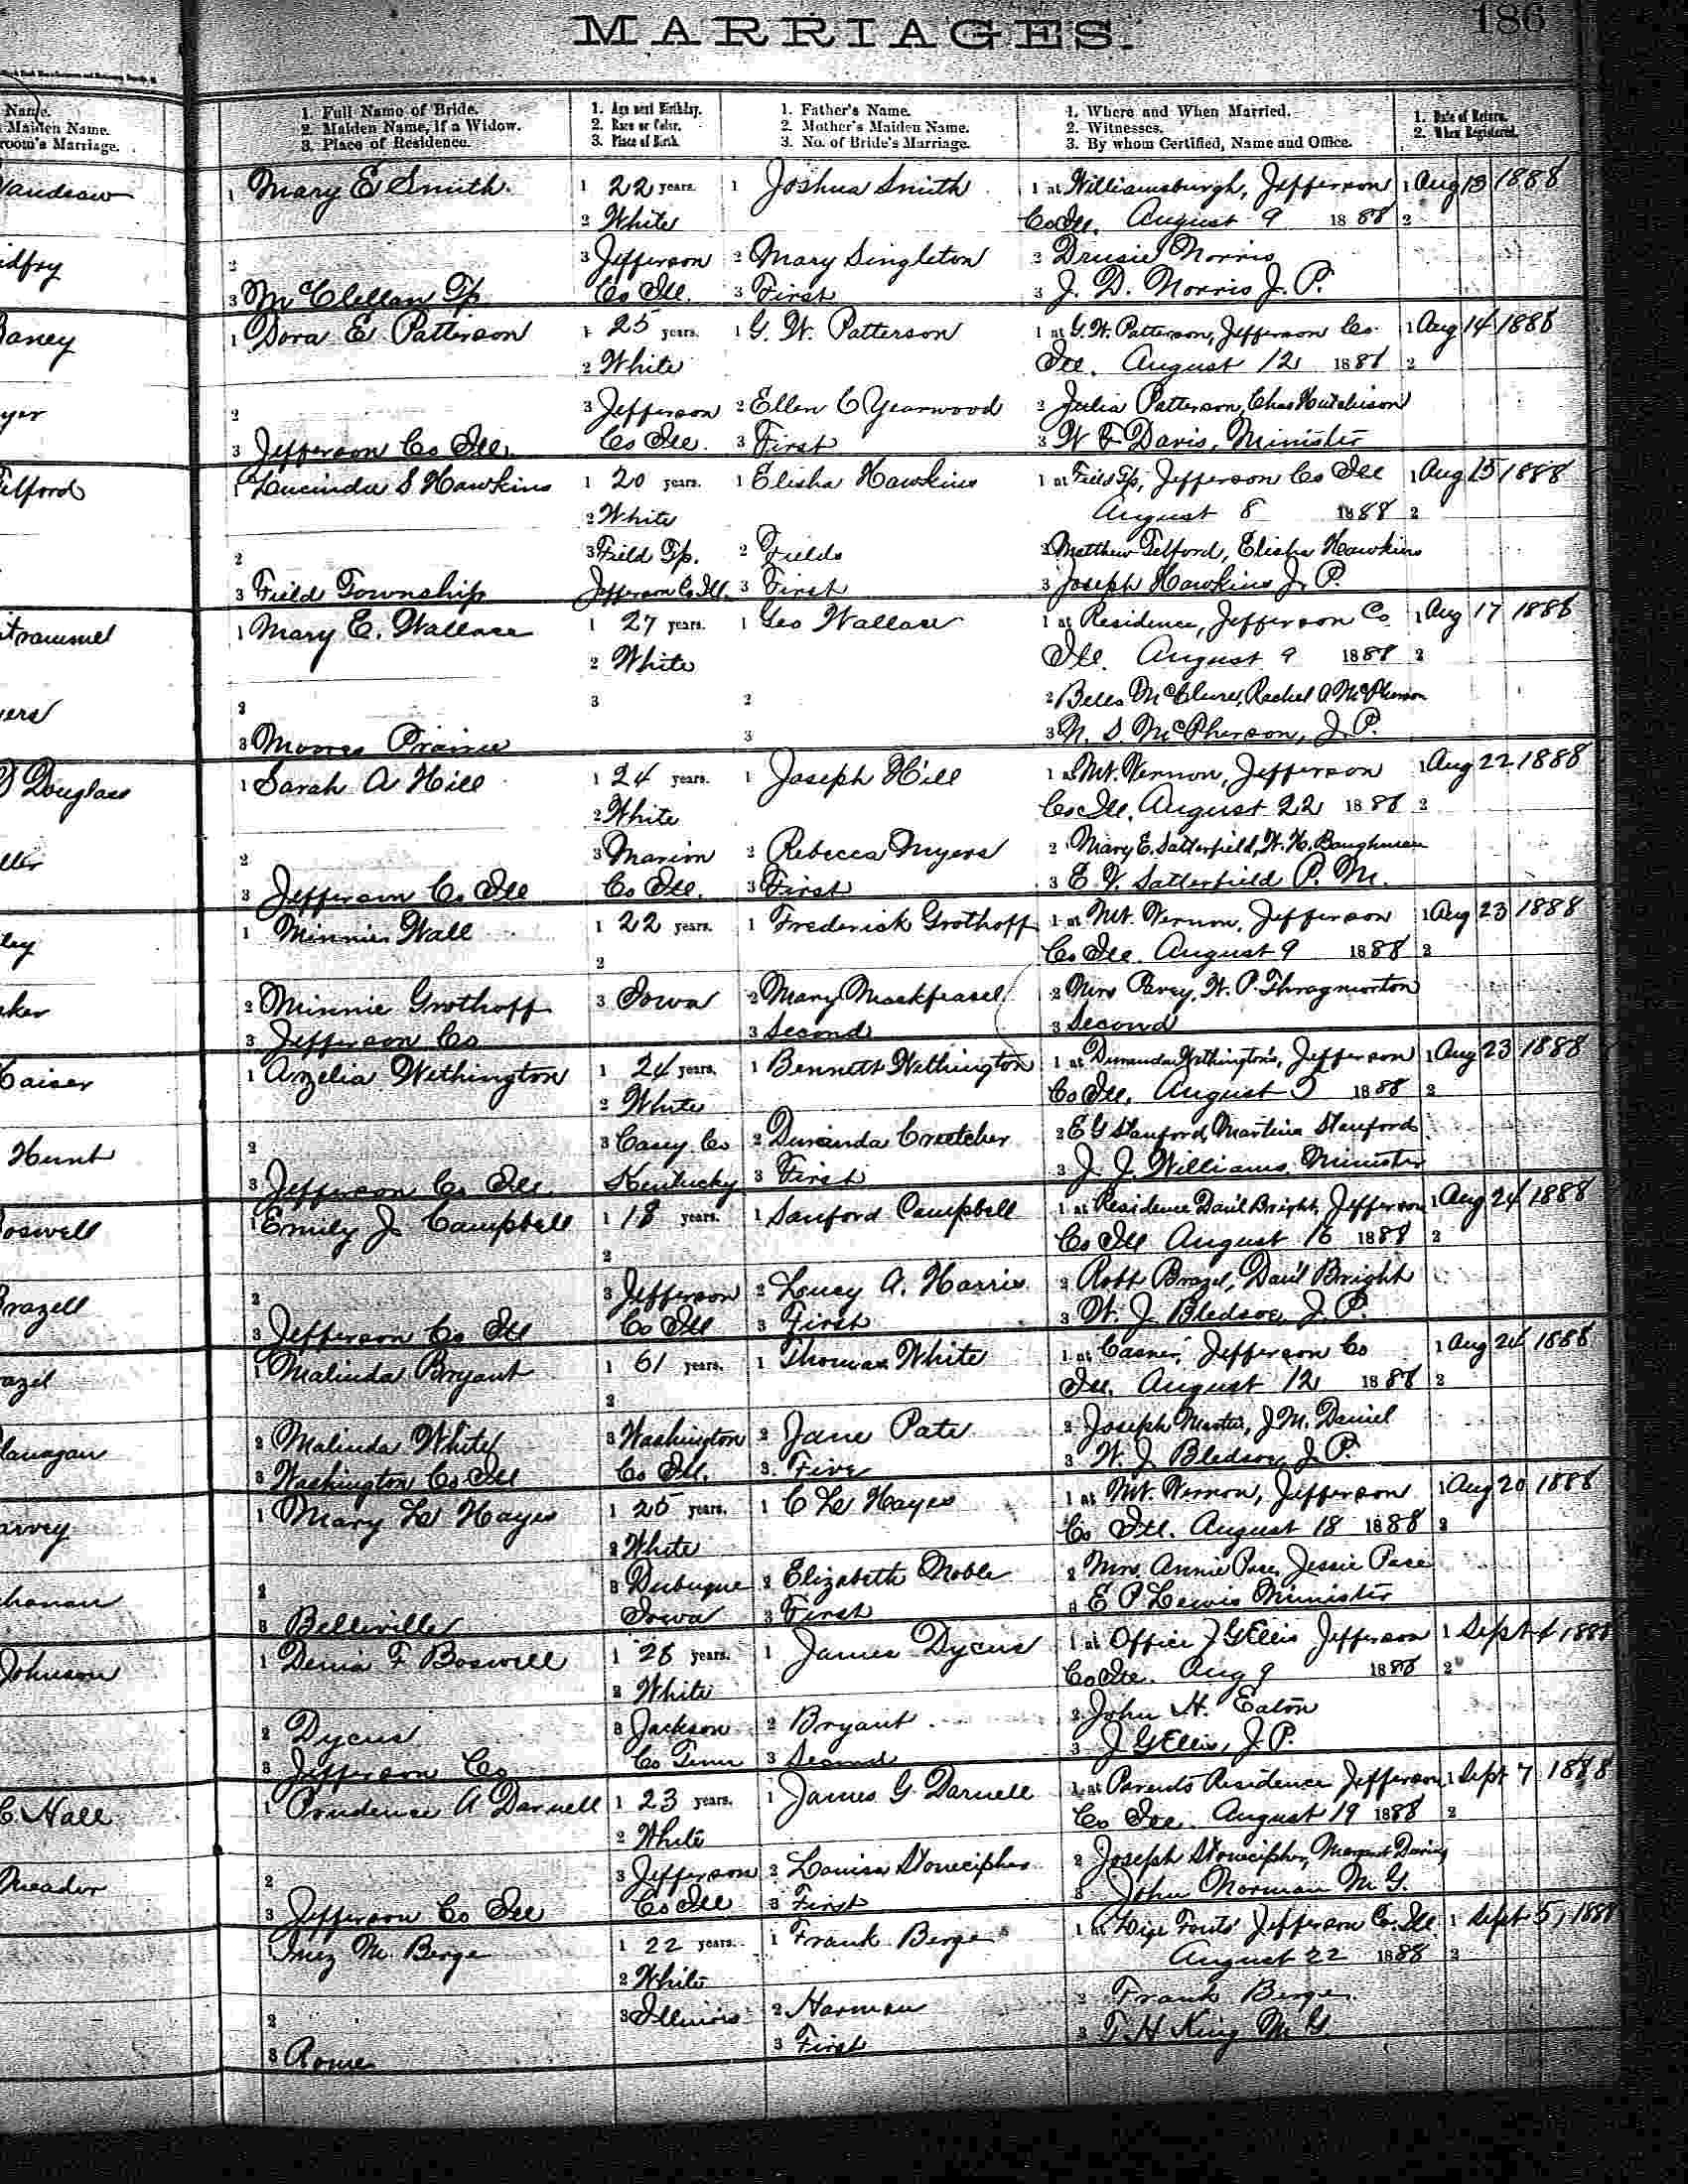 MARRIAGES.
186
Name.
Maiden Name.
room's Marriage.
1. Full Name of Bride.
2. Maiden Name, If a Widow.
3. Place of Residence.
1. Age next Birthday.
2. Race or Color.
3. Place of Birth.
1. Father's Name.
2. Mother's Maiden Name.
3. No. of Bride's Marriage.
1. Where and When Married.
2. Witnesses.
3. By whom Certified, Name and Office.
1. Date of Return.
2. When Registered.
1 Mary E Smith. 1 22 years. 1 Joshua Smith 1 at Williamsburgh, Jefferson 1 Aug 13 1888
2 White Co Ill. August 9 1888 2
2 3 Jefferson 2 Mary Singleton 2 Drusie Norris
3 McClellan Tp Co Ill. 3 First 3 J. D. Norris J. P.
1 Dora E Patterson 1 25 years. 1 G. W. Patterson 1 at G. W. Patterson, Jefferson Co. 1 Aug 14 1888
2 White Ill. August 12 1888 2
2 3 Jefferson 2 Ellen C Yearwood 2 Julia Patterson, Chas Hutchison
3 Jefferson Co Ill. Co Ill. 3 First 3 W F Davis, Minister
Telford 1 Lucinda S Hawkins 1 20 years. 1 Elisha Hawkins 1 at Field Tp, Jefferson Co Ill 1 Aug 15 1888
2 White August 8 1888 2
2 3 Field Tp. 2 Fields 2 Matthew Telford, Elisha Hawkins
3 Field Township Jefferson Co Ill. 3 First 3 Joseph Hawkins J. P.
1 Mary E. Wallace 1 27 years. 1 Geo Wallace 1 at Residence, Jefferson Co 1 Aug 17 1888
2 White Ill. August 9 1888 2
2 3 2 2 Belle McClure, Rachel A McPherson
3 Moores Prairie 3 3 N. S McPherson, J. P.
Douglass 1 Sarah A Hill 1 24 years. 1 Joseph Hill 1 at Mt. Vernon, Jefferson 1 Aug 22 1888
2 White Co Ill. August 22 1888 2
2 3 Marion 2 Rebecca Myers 2 Mary E. Satterfield, W. H. Baughman
3 Jefferson Co Ill Co Ill. 3 First 3 E. V. Satterfield P. M.
1 Minnie Wall 1 22 years. 1 Frederick Grothoff 1 at Mt. Vernon, Jefferson 1 Aug 23 1888
2 Co Ill. August 9 1888 2
2 Minnie Grothoff 3 Iowa 2 Mary 2 Mrs Pavey, W. P. Throgmorton
3 Jefferson Co 3 Second 3 Second
1 Arzelia Wethington 1 24 years. 1 Bennett Wethington 1 at Duranda Wethington's, Jefferson 1 Aug 23 1888
2 White Co Ill. August 5 1888 2
Hunt 2 3 Casey Co 2 Duranda 2 E G Stanford, Martina Stanford
3 Jefferson Co Ill. Kentucky 3 First 3 J. J. Williams Minister
1 Emily J Campbell 1 18 years. 1 Sanford Campbell 1 at Residence Dan'l Bright, Jefferson 1 Aug 24 1888
2 Co Ill August 16 1888 2
2 3 Jefferson 2 Loucy A. Harris 2 Robt Brazel, Dan'l Bright
3 Jefferson Co Ill Co Ill 3 First 3 W. J. Bledsoe, J. P.
1 Malinda Bryant 1 61 years. 1 Thomas White 1 at Casner, Jefferson Co 1 Aug 24 1888
2 Ill. August 12 1888 2
2 Malinda White 3 Washington 2 Jane Pate 2 Joseph J M. Daniel
3 Washington Co Ill Co Ill. 3 Five 3 W. J. Bledsoe, J. P.
1 Mary L Hayes 1 25 years. 1 C L Hayes 1 at Mt. Vernon, Jefferson 1 Aug 20 1888
2 White Co Ill. August 18 1888 2
2 3 Dubuque 2 Elizabeth Noble 2 Mrs Annie Pace, Jessie Pace
3 Belleville Iowa 3 First 3 E P Lewis Minister
Johnson 1 F Boswell 1 28 years. 1 James Dycus 1 at Office J G Ellis Jefferson 1 Sept 4 1888
2 White Co Ill. Aug 9 1888 2
2 Dycus 3 Jackson 2 Bryant 2 John H. Eaton
3 Jefferson Co Co Tenn 3 Second 3 J G Ellis, J. P.
C. Hall 1 Prudence A Darnell 1 23 years. 1 James G. Darnell 1 at Parents Residence Jefferson 1 Sept 7 1888
2 White Co Ill. August 19 1888 2
Meador 2 3 Jefferson 2 Louisa Stonecipher 2 Joseph Stonecipher, Margaret
3 Jefferson Co Ill Co Ill 3 First 3 John Norman M G.
1 Inez M. Berge 1 22 years. 1 Frank Berge 1 at Fouts' Jefferson Co. Ill. 1 Sept 5, 1888
2 White August 22 1888 2
2 3 Illinois 2 Harman 2 Frank Berge
3 Rome 3 First 3 T H King M G